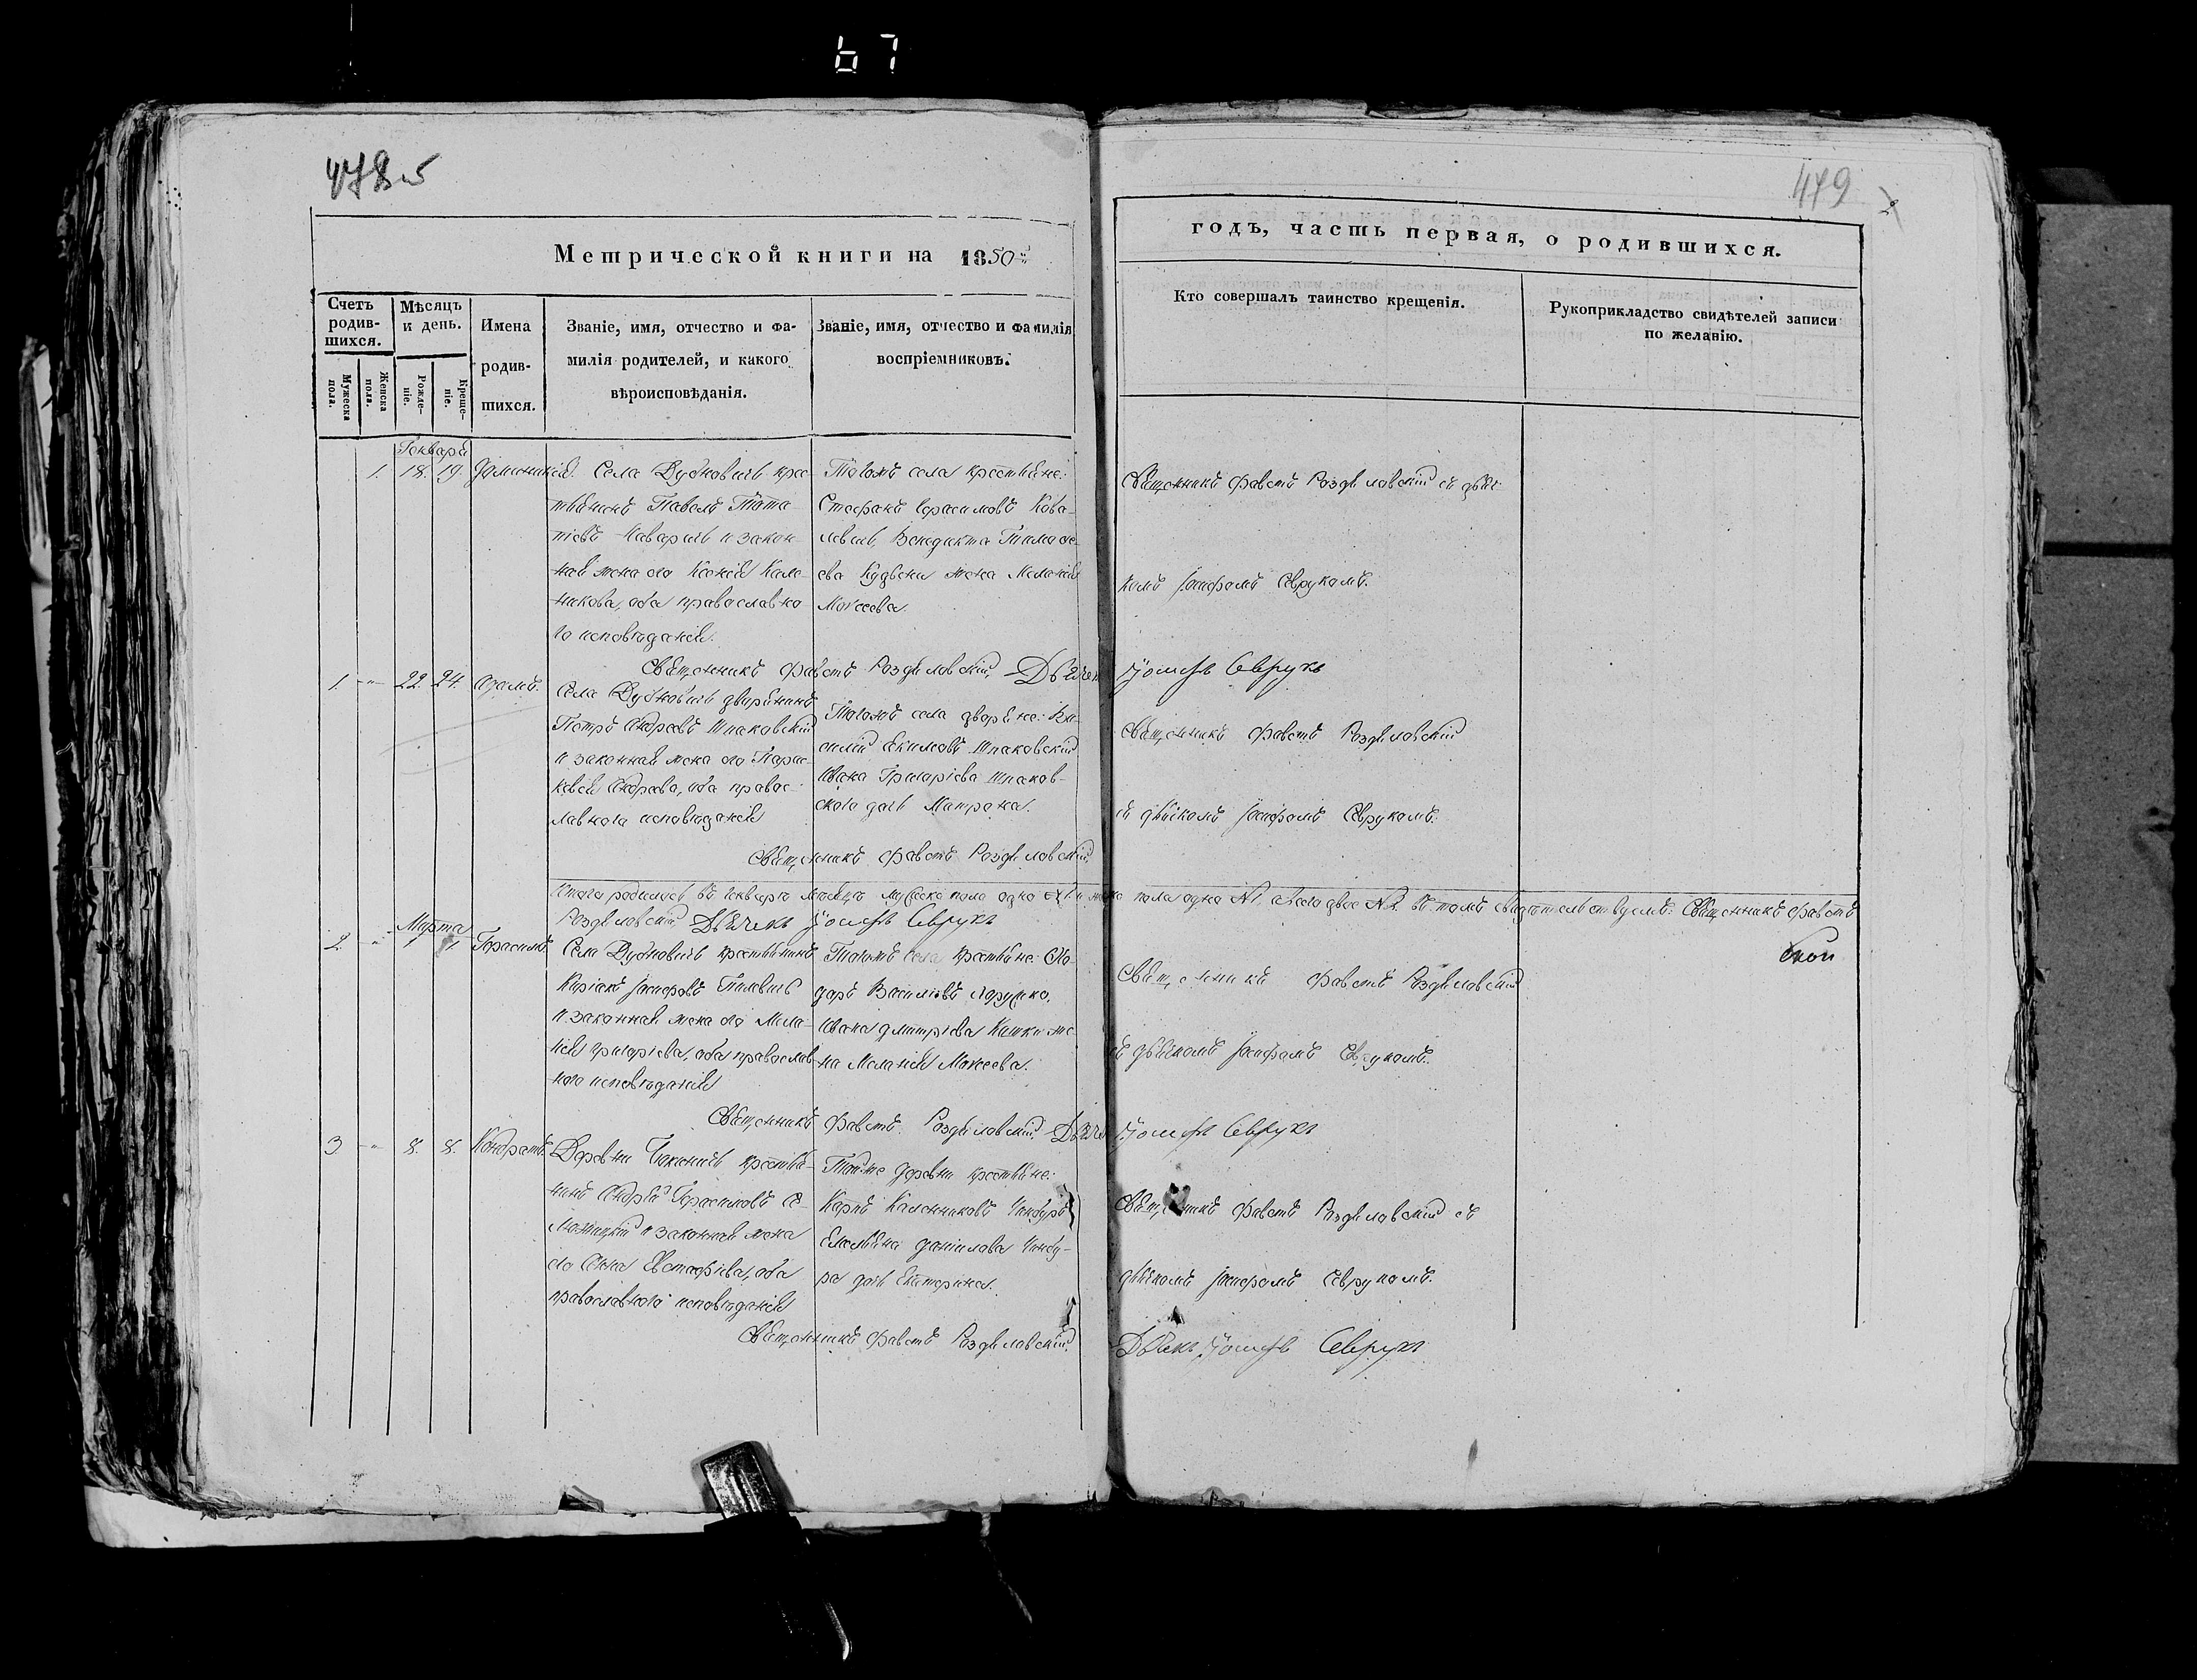 67
478 об
479
Метрической книги на 1850й
годъ, часть первая, о родившихся.
Счетъ родив-шихся.
Мужеска пола.
Женска пола.
Мѣсяцъ и день.
Рожде-ніе.
Креще-ніе.
Имена
родив-
шихся.
Званіе, имя, отчество и фа-
милія родителей, и какого
вѣроисповѣданія.
Званіе, имя, отчество и фамилія
воспріемниковъ.
Кто совершалъ таинство крещенія.
Рукоприкладство свидѣтелей записи
по желанію.
Генваря
1. 18. 19.
Села Дубновичь крес-
тьянинъ Павелъ
и закон-
ная жена его Ксенія Кале-
никова, оба православна-
го исповѣданія.
Тогожъ села крестьяне:
Стефанъ Герасимовъ Кова-
левичь,
жена Меланія
Моисеева.
Священникъ Фавстъ Роздѣловскій съ дьяч-
комъ Іосифомъ Севрукомъ.
Священникъ Фавстъ Роздѣловскій, Дьячекъ Іосифъ Севрукъ
1. - " - 22. 24. Адамъ.
Села Дубновичь дворянинъ
Петръ Андреевъ Шпаковскій
и законная жена его Парас-
кевія Андреева, оба правос-
лавнаго исповѣданія
Тогожъ села дворяне:
Екимовъ Шпаковскій
Ивана Григоріева Шпаков-
скаго дочь Матрона.
Священникъ Фавстъ Роздѣловскій
съ дьячкомъ Іосифомъ Севрукомъ.
Священникъ Фавстъ Роздѣловскій,
Итого родилось въ Генварѣ мѣсяцѣ мужеска пола одно №1 и женска пола одна №1. а всего двое №2. въ томъ свидѣтельствуемъ: Священникъ Фавстъ
Роздѣловскій, Дьячекъ Іосифъ Севрукъ
Марта
2. " 1 1 Герасимъ.
Села Дубновичь крестьянинъ
Киріакъ Іосифовъ
и законная жена его Мела-
нія Григоріева, оба православ-
наго исповѣданія
Тогожъ села крестьяне: Ѳео-
доръ Василіевъ
Ивана Дмитріева же-
на Меланія Моисеева.
Священникъ Фавстъ Роздѣловскій
съ дьячкомъ Іосифомъ Севрукомъ.
Священникъ Фавстъ Роздѣловскій, Дьячекъ Іосифъ Севрукъ
3 - " - 8. 8. Кондратъ.
Деревни крестья-
нинъ Андрей Герасимовъ
и законная жена
его Анна Евстафіева, оба
православнаго исповѣданія
Тойже деревни крестьяне:
Карпъ Калениковъ
Даніилова
дочь Екатерина.
Священникъ Фавстъ Роздѣловскій съ
дьячкомъ Іосифомъ Севрукомъ.
Священникъ Фавстъ Роздѣловскій, Дьячекъ Іосифъ Севрукъ